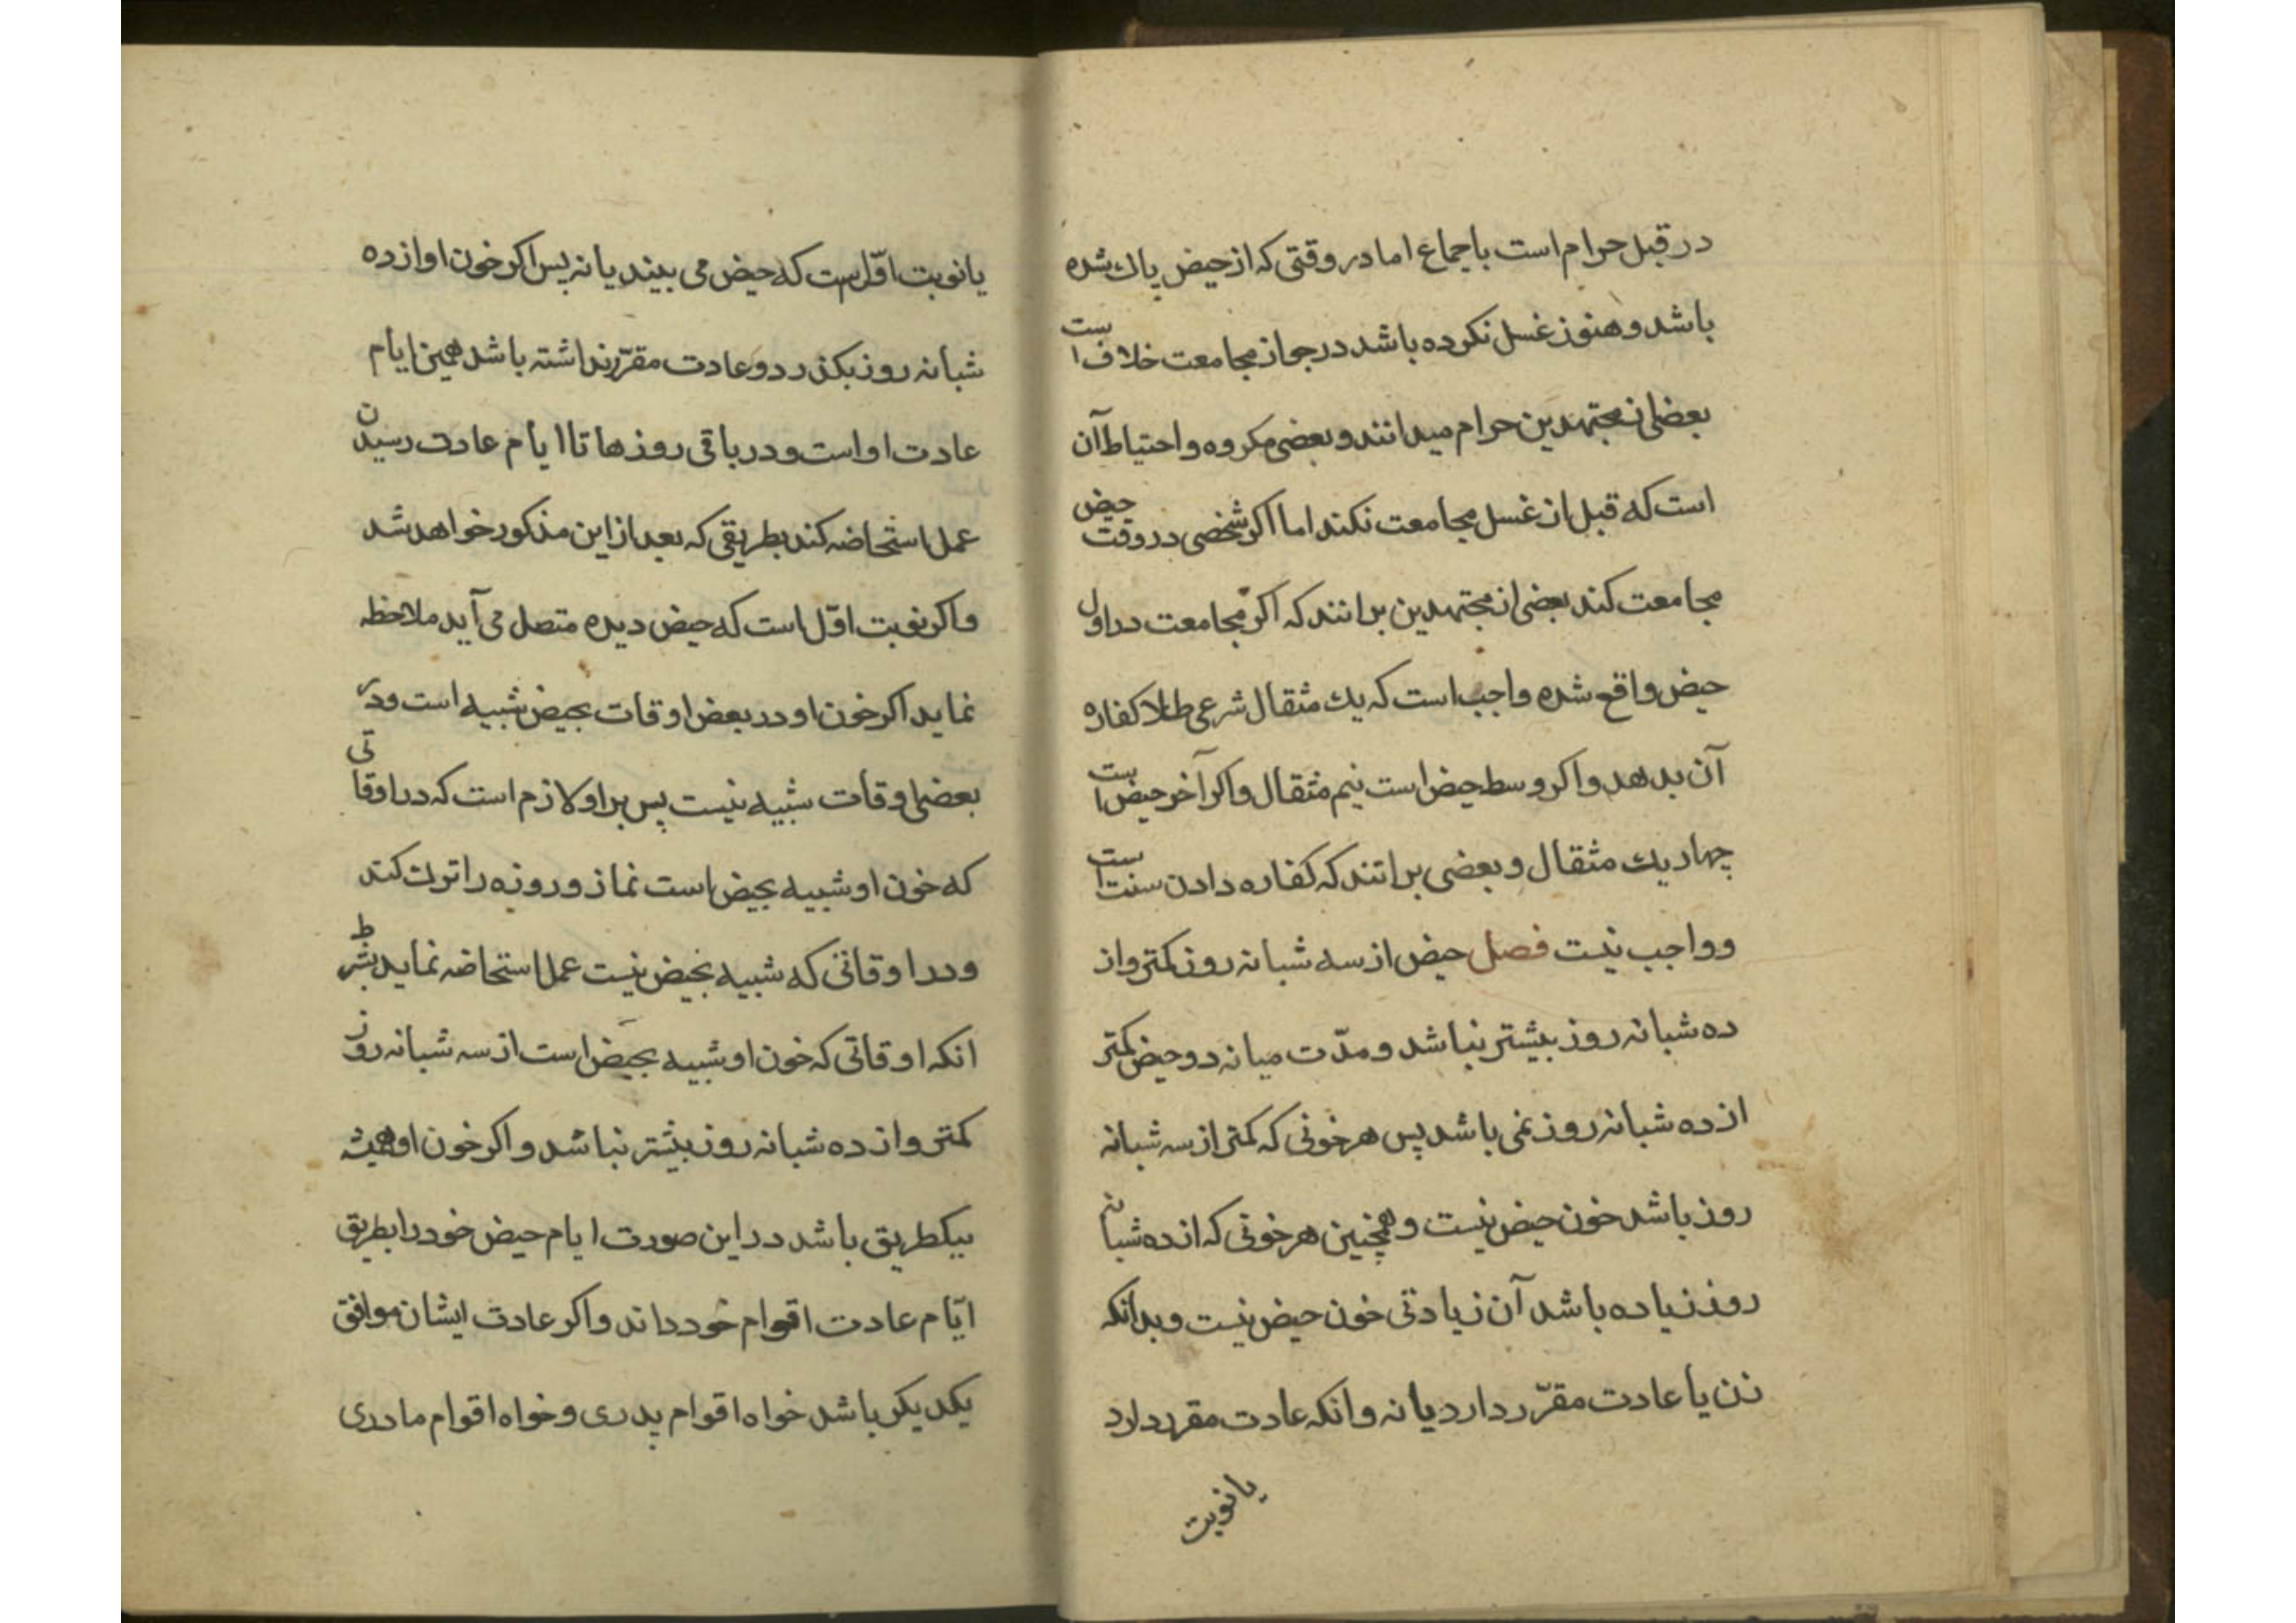 در قبل حرام است باجماع اما در وقتی که از حیض پاك شده
باشد و هنوز غسل نکرده باشد در جواز مجامعت خلاف است
بعضی از مجتهدین حرام میدانند و بعضی مکروه و احتیاط آن
است که قبل از غسل مجامعت نکند اما اکر شخصی در وقت حیض
مجامعت کند بعضی از مجتهدین برانند که اکر مجامعت در اول
حیض واقع شده واجب است که یك مثقال شرعی طلا کفاره
آن بدهد و اکر وسط حیض است نیم مثقال و اکر آخر حیض است
چهار یك مثقال و بعضی برانند که کفاره دادن سنت است
و واجب نیست فصل حیض از سه شبانه روز کمتر و از
ده شبانه روز بیشتر نباشد و مدّت میانه دو حیض کمتر
از ده شبانه روز نمی باشد پس هر خونی که کمتر از سه شبانه
روز باشد خون حیض نیست و همچنین هر خونی که از ده شبانه
روز زیاده باشد آن زیادتی خون حیض نیست و بدانکه
زن یا عادت مقرّر دارد یا نه و انکه عادت مقرر دارد
یا نوبت
یا نوبت اوّل است که حیض می بیند یا نه پس اکر خون او از ده
شبانه روز بکذرد و عادت مقرّر نداشته باشد همین ایام
عادت او است و در باقی روزها تا ایام عادت رسیدن
عمل استحاضه کند بطریقی که بعد از این مذکور خواهد شد
و اکر نوبت اوّل است که حیض دیده متصل می آید ملاحظه
نماید اکر خون او در بعض اوقات بحیض شبیه است و در
بعضی اوقات شبیه نیست پس بر او لازم است که در اوقاتی
که خون او شبیه بحیض است نماز و روزه را ترك کند
و در اوقاتی که شبیه بحیض نیست عمل استحاضه نماید بشرط
انکه اوقاتی که خون او شبیه بحیض است از سه شبانه روز
کمتر و از ده شبانه روز بیشتر نباشد و اکر خون او همیشه
بیکطریق باشد در این صورت ایام حیض خود را بطریق
ایّام عادت اقوام خود داند و اکر عادت ایشان موافق
یکدیکر باشد خواه اقوام پدری و خواه اقوام مادری